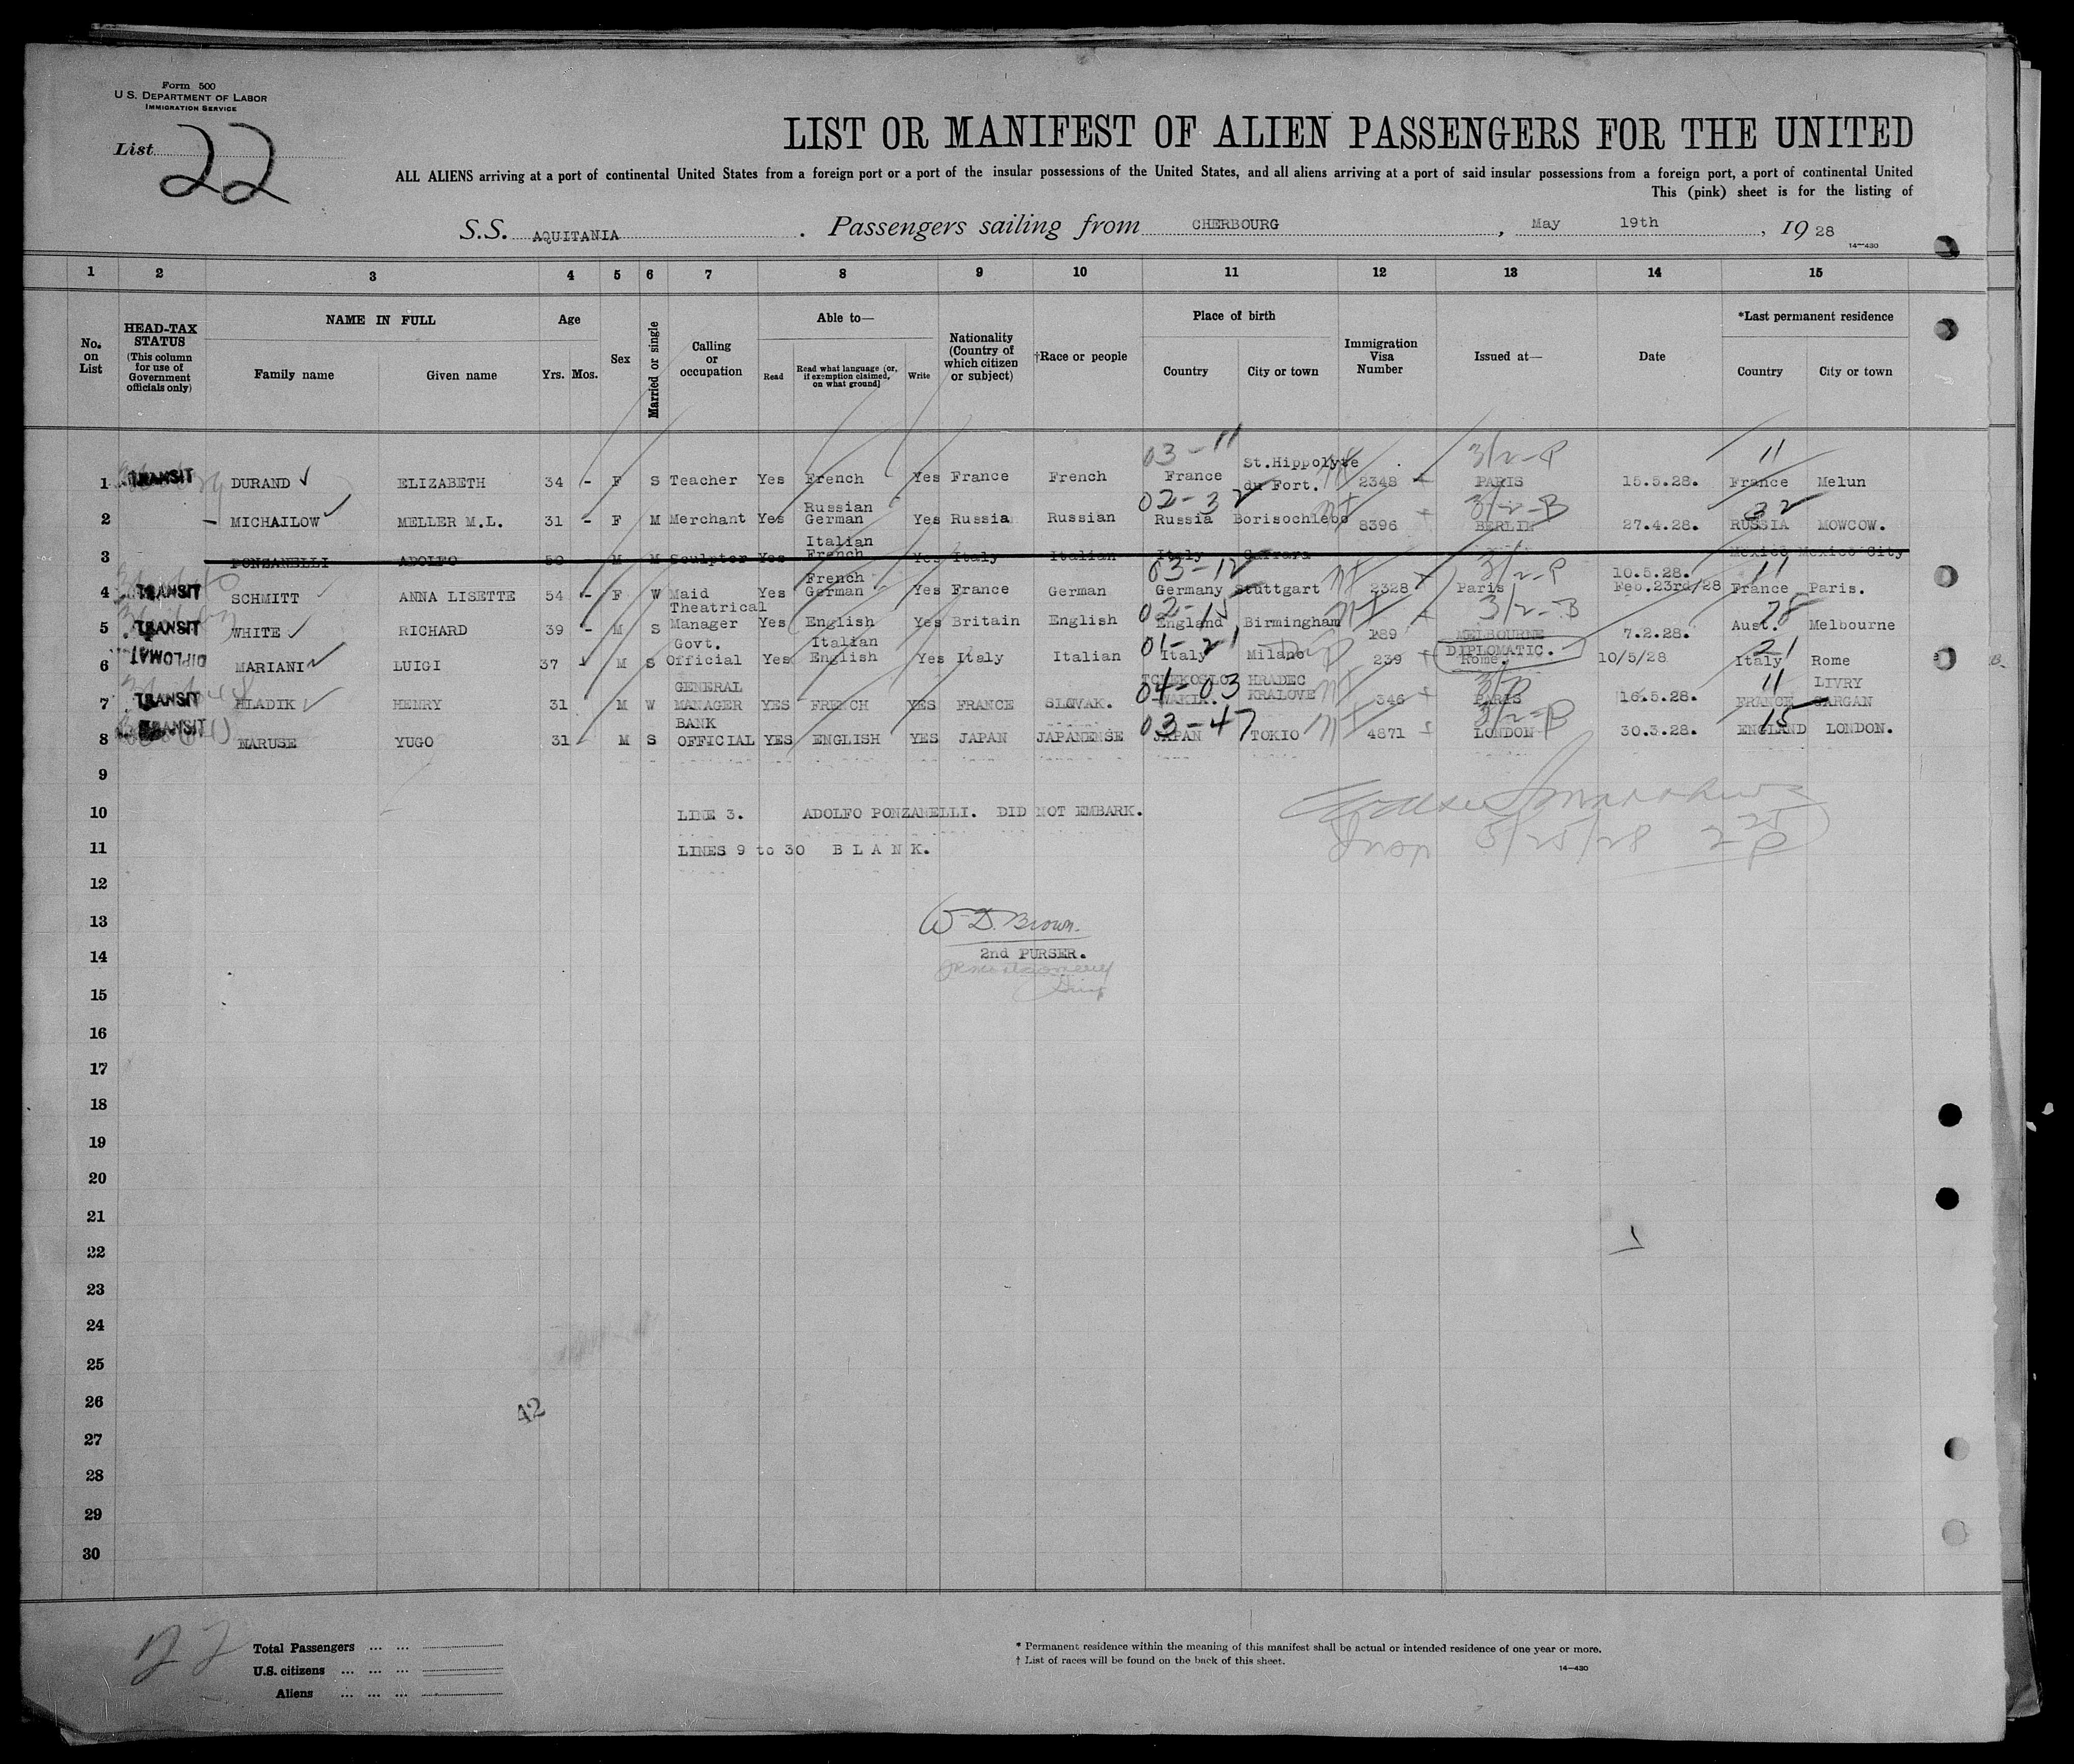 Form 500
U.S. DEPARTMENT OF LABOR
IMMIGRATION SERVICE
List 22
LIST OR MANIFEST OF ALIEN PASSENGERS FOR THE UNITED
ALL ALIENS arriving at a port of continental United States from a foreign port or a port of the insular possessions of the United States, and all aliens arriving at a port of said insular possessions from a foreign port, a port of continental United
This (pink) sheet is for the listing of
S.S. AQUITANIA . Passengers sailing from CHERBOURG , May 19th , 19 28
14-430
1 2 3 4 5 6 7 8 9 10 11 12 13 14 15
No. on List
HEAD-TAX STATUS (This column for use of Government officials only)
NAME IN FULL Family name Given name
Age Yrs. Mos.
Sex
Married or single
Calling or occupation
Able to— Read Read what language (or, if exemption claimed, on what ground) Write
Nationality (Country of which citizen or subject)
†Race or people
Place of birth Country City or town
Immigration Visa Number
Issued at—
Date
*Last permanent residence Country City or town
03-11 3/2-P 11
1 TRANSIT DURAND ELIZABETH 34 - F S Teacher Yes French Yes France French France St.Hippolyte du Fort. 2348 PARIS 15.5.28. France Melun
02-32 3/2-B 32
2 MICHAILOW MELLER M.L. 31 - F M Merchant Yes Russian German Yes Russia Russian Russia Borisochlebo 8396 BERLIN 27.4.28. RUSSIA MOWCOW.
3 PONZANELLI ADOLFO 50 M M Sculptor Yes Italian French Yes Italy Italian Italy Carrara Mexico Mexico City
03-12 3/2-P 11
4 TRANSIT SCHMITT ANNA LISETTE 54 - F W Maid Yes French German Yes France German Germany Stuttgart 2328 Paris 10.5.28. Feo.23rd/28 France Paris.
02-15 3/2-B 28
5 TRANSIT WHITE RICHARD 39 - M S Theatrical Manager Yes English Yes Britain English England Birmingham 189 MELBOURNE 7.2.28. Aust. Melbourne
01-21 21
6 DIPLOMAT MARIANI LUIGI 37 M S Govt. Official Yes Italian English Yes Italy Italian Italy Milano 239 DIPLOMATIC. Rome. 10/5/28 Italy Rome
04-03 11
7 TRANSIT HLADIK HENRY 31 M W GENERAL MANAGER YES FRENCH YES FRANCE SLOVAK. TCHEKOSLO WAKIA. HRADEC KRALOVE 346 PARIS 16.5.28. FRANCE LIVRY GARGAN
03-47 3/2-B 15
8 TRANSIT MARUSE YUGO 31 M S BANK OFFICIAL YES ENGLISH YES JAPAN JAPANENSE JAPAN TOKIO 4871 LONDON 30.3.28. ENGLAND LONDON.
9
10 LINE 3. ADOLFO PONZANELLI. DID NOT EMBARK.
Insp 5/25/28
11 LINES 9 to 30 B L A N K.
12
13 W D. Brown.
14 2nd PURSER.
15
16
17
18
19
20
21
22
23
24
25
26
42
27
28
29
30
22
Total Passengers ... ...
U.S. citizens ... ... ...
Aliens ... ... ...
* Permanent residence within the meaning of this manifest shall be actual or intended residence of one year or more.
† List of races will be found on the back of this sheet.
14-430